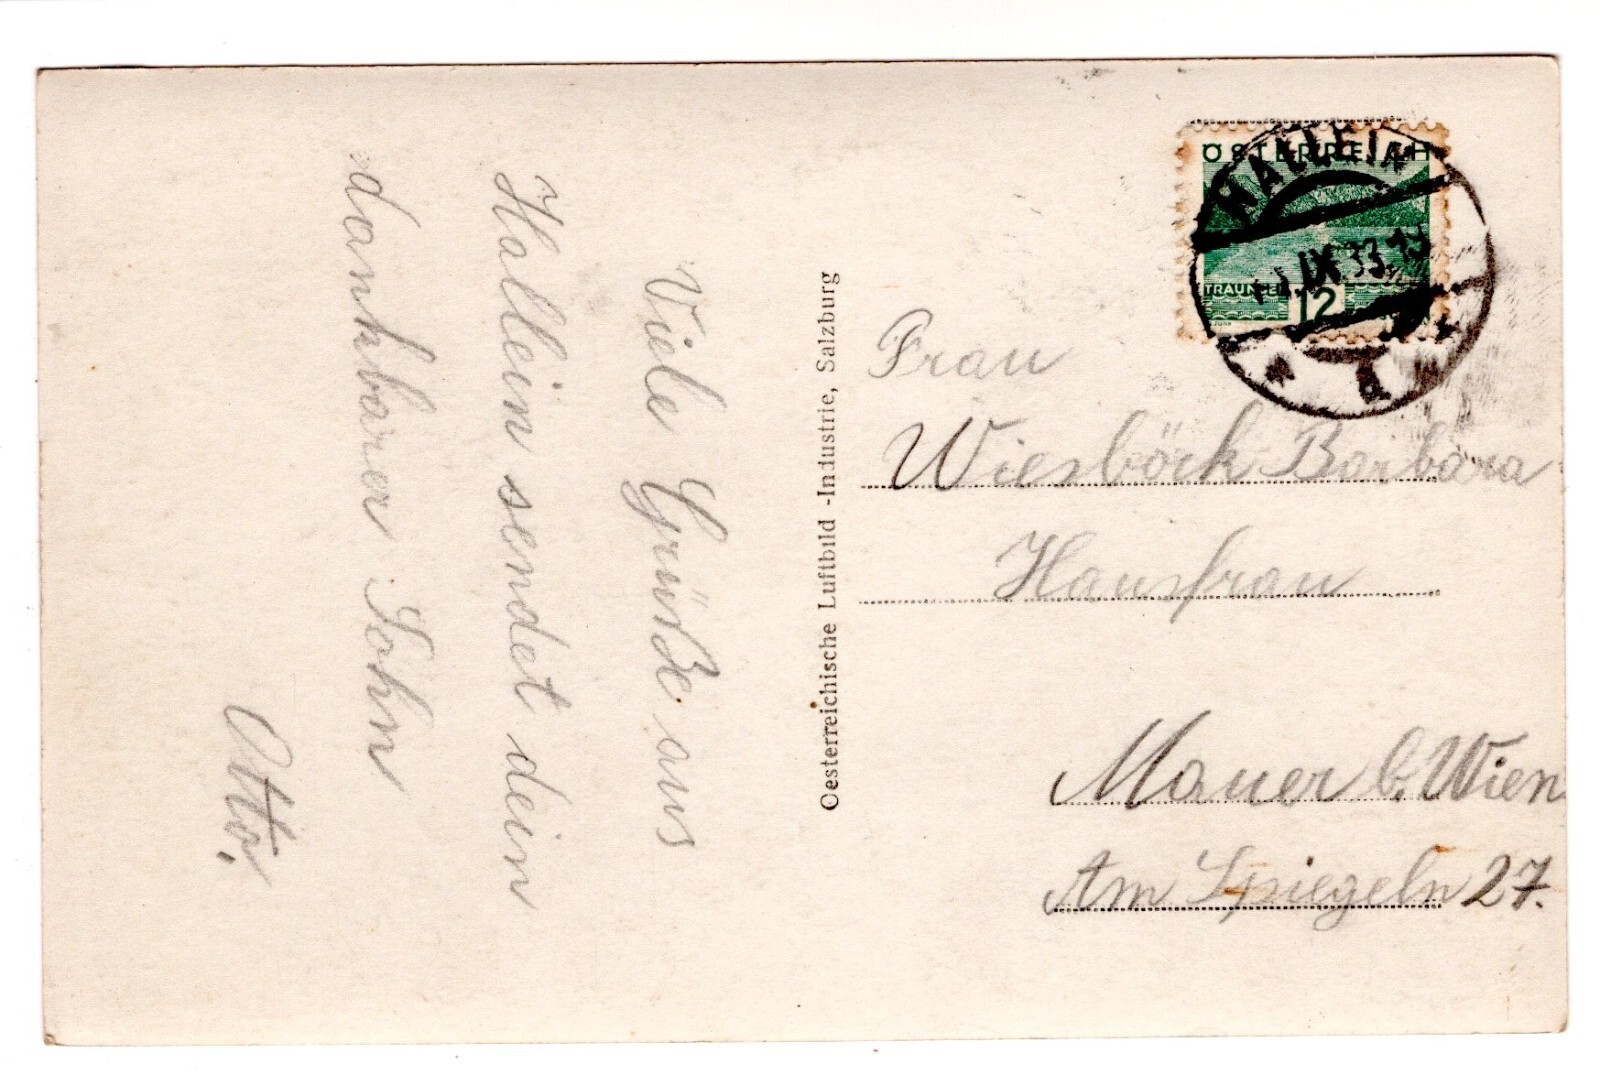 Viele Grüße aus
Hallein sendet dein
dankbarer Sohn
Otto.
Oesterreichische Luftbild -Industrie, Salzburg
ÖSTERREICH
TRAUNSEE
12
HALLEIN
IX.33.19
Frau
Wiesböck Barbara
Hausfrau
Mauer b. Wien
Am Spiegeln 27.